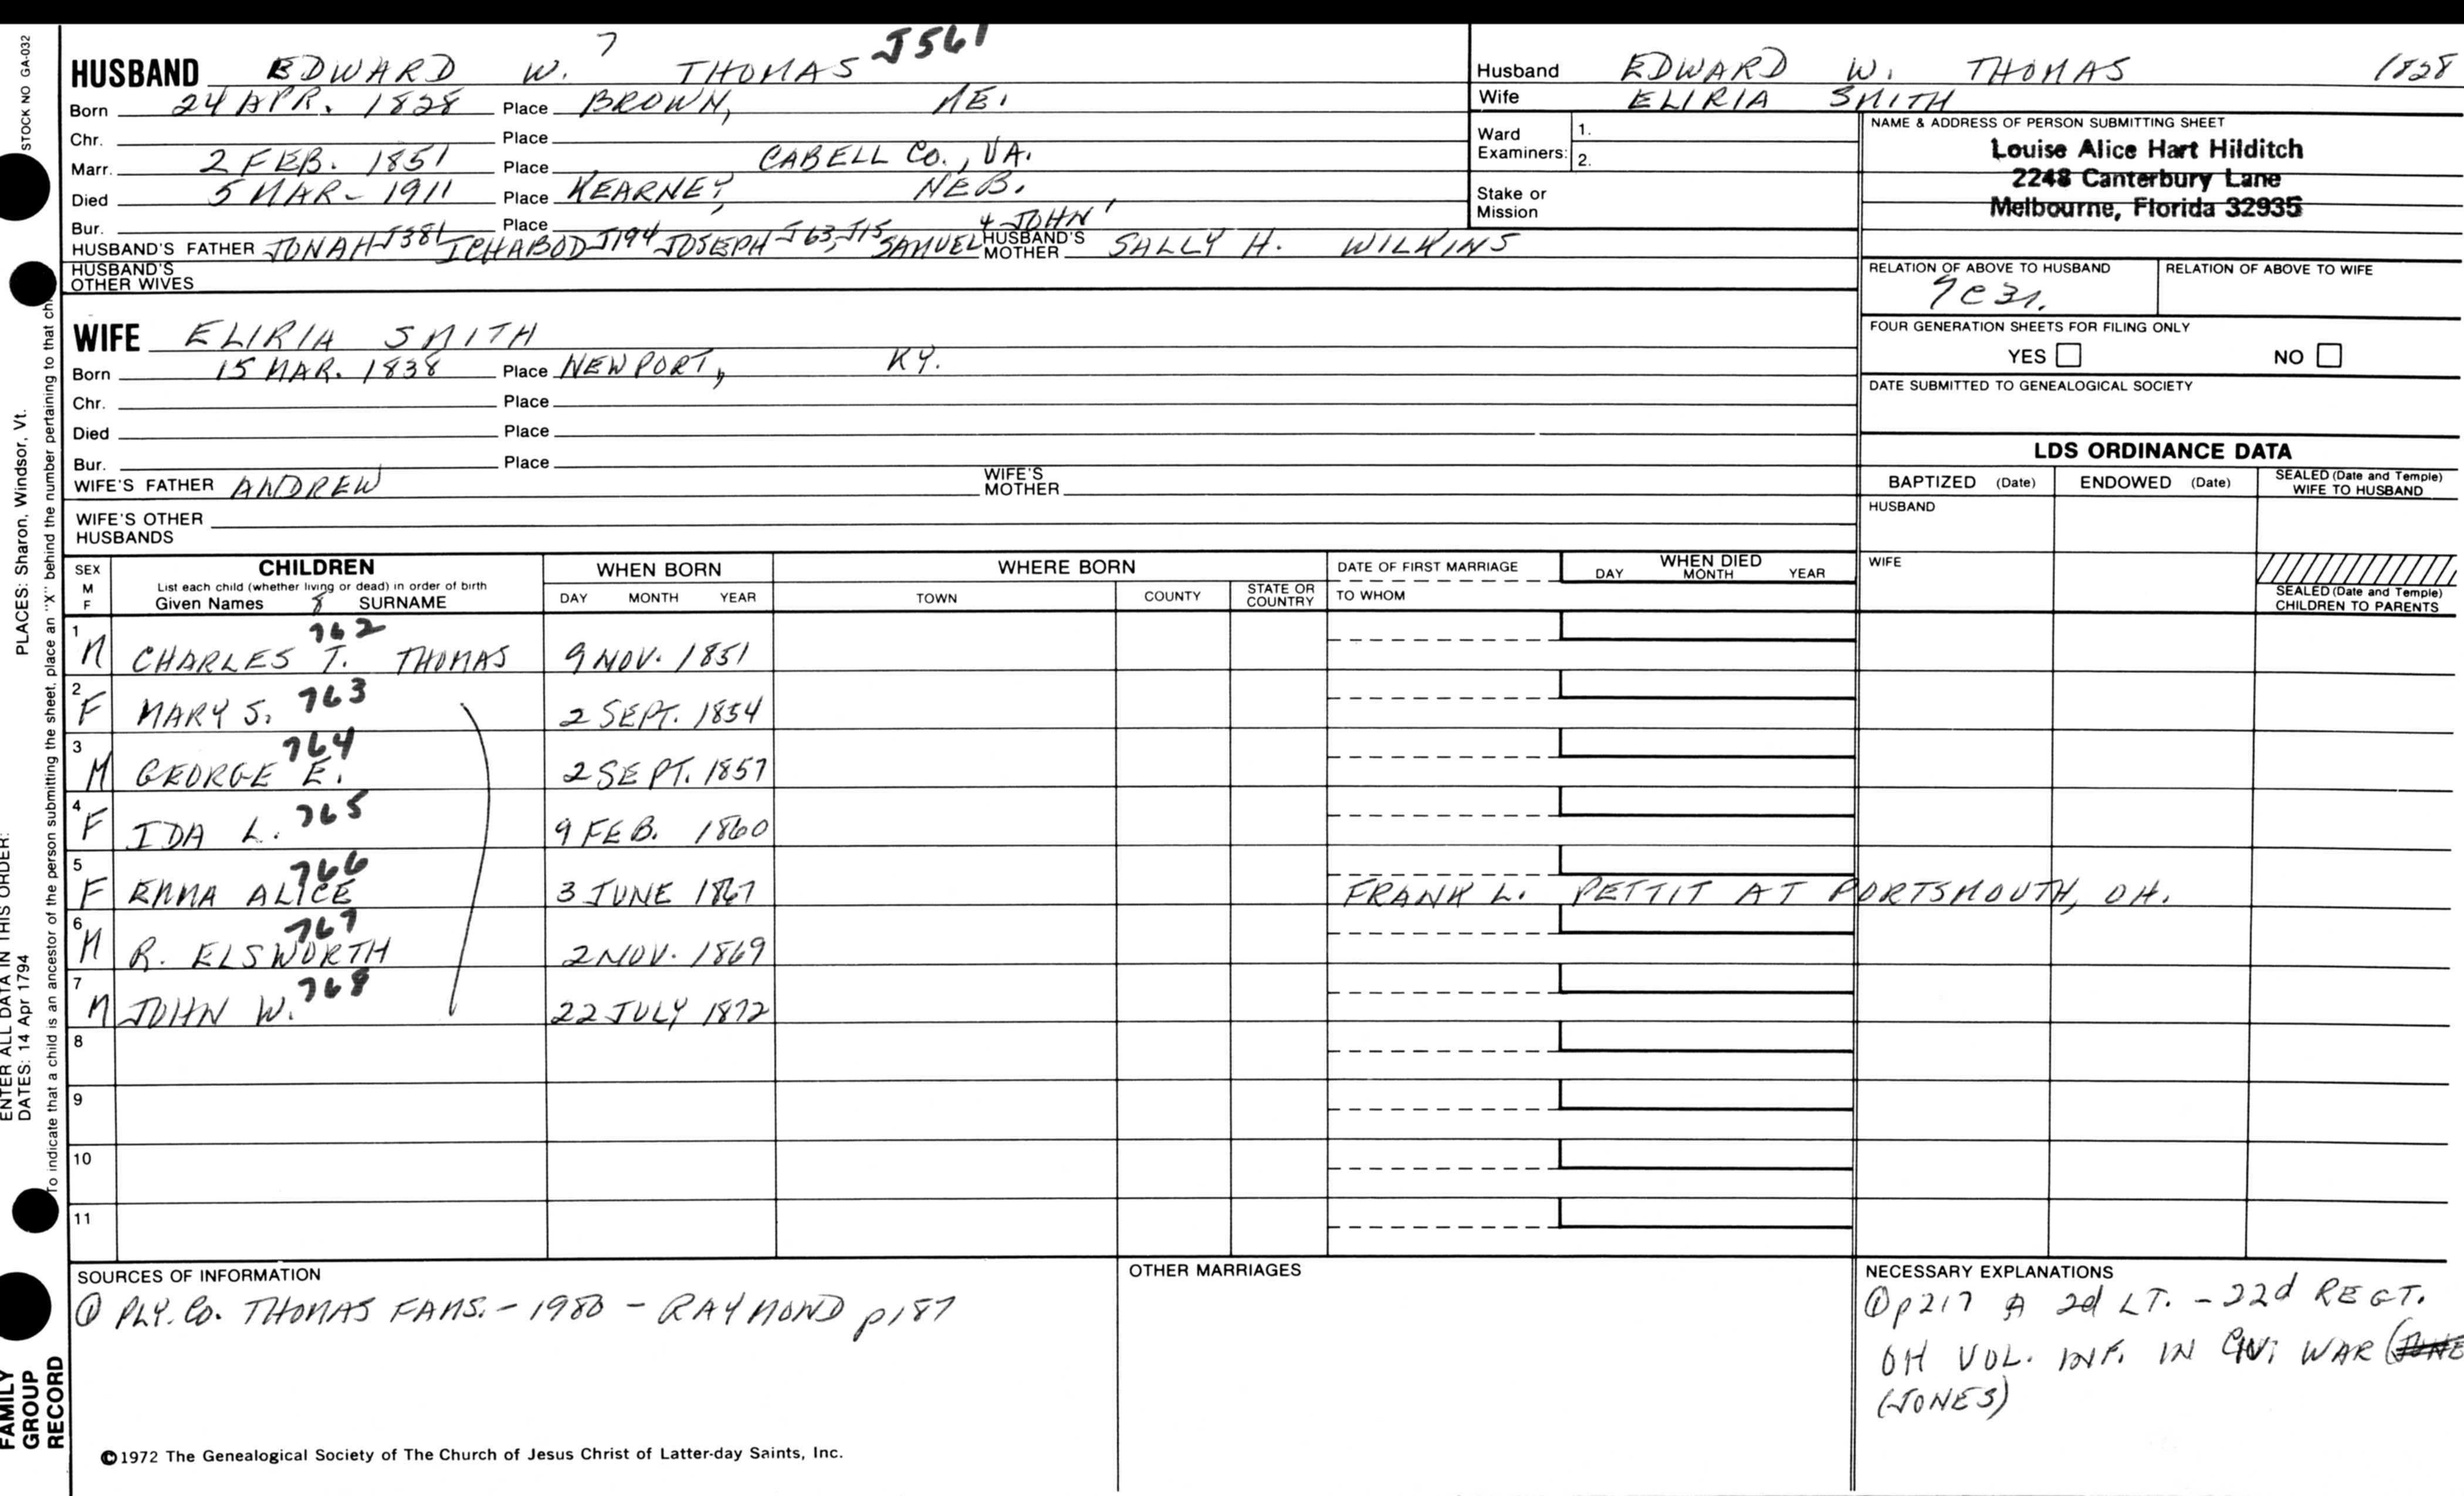 STOCK NO GA-032
PLACES: Sharon, Windsor, Vt.
ENTER ALL DATA IN THIS ORDER:
DATES: 14 Apr 1794
To indicate that a child is an ancestor of the person submitting the sheet, place an "X" behind the number pertaining to that ch
FAMILY
GROUP
RECORD
7 J561
HUSBAND EDWARD W. THOMAS
Born 24 APR. 1828 Place BROWN, ME.
Chr. Place
Marr. 2 FEB. 1851 Place CABELL CO., VA.
Died 5 MAR - 1911 Place KEARNEY, NEB.
Bur. Place
HUSBAND'S FATHER JONAH J381 ICHABOD J194 JOSEPH J63, J15 SAMUEL 4 JOHN 1 HUSBAND'S MOTHER SALLY H. WILKINS
HUSBAND'S
OTHER WIVES
WIFE ELIRIA SMITH
Born 15 MAR. 1838 Place NEWPORT, KY.
Chr. Place
Died Place
Bur. Place
WIFE'S FATHER ANDREW WIFE'S MOTHER
WIFE'S OTHER
HUSBANDS
Husband EDWARD W. THOMAS 1828
Wife ELIRIA SMITH
Ward
Examiners: 1.
2.
Stake or
Mission
NAME & ADDRESS OF PERSON SUBMITTING SHEET
Louise Alice Hart Hilditch
2248 Canterbury Lane
Melbourne, Florida 32935
RELATION OF ABOVE TO HUSBAND RELATION OF ABOVE TO WIFE
7C3r.
FOUR GENERATION SHEETS FOR FILING ONLY
YES NO
DATE SUBMITTED TO GENEALOGICAL SOCIETY
LDS ORDINANCE DATA
BAPTIZED (Date) ENDOWED (Date) SEALED (Date and Temple)
WIFE TO HUSBAND
HUSBAND
WIFE
SEALED (Date and Temple)
CHILDREN TO PARENTS
SEX
M
F
CHILDREN
List each child (whether living or dead) in order of birth
Given Names 8 SURNAME
WHEN BORN
DAY MONTH YEAR
WHERE BORN
TOWN COUNTY STATE OR COUNTRY
DATE OF FIRST MARRIAGE
TO WHOM
WHEN DIED
DAY MONTH YEAR
762
1 M CHARLES T. THOMAS 9 NOV. 1851
2 F MARY S. 763 2 SEPT. 1854
764
3 M GEORGE E. 2 SEPT. 1857
4 F IDA L. 765 9 FEB. 1860
766
5 F EMMA ALICE 3 JUNE 1867 FRANK L. PETTIT AT PORTSMOUTH, OH.
767
6 M R. ELSWORTH 2 NOV. 1869
7 M JOHN W. 768 22 JULY 1872
8
9
10
11
SOURCES OF INFORMATION
① PLY. CO. THOMAS FAMS. - 1980 - RAYMOND p187
OTHER MARRIAGES
NECESSARY EXPLANATIONS
① p217 A 2d LT. - 22d REGT.
OH VOL. INF. IN CIVI WAR
(JONES)
©1972 The Genealogical Society of The Church of Jesus Christ of Latter-day Saints, Inc.